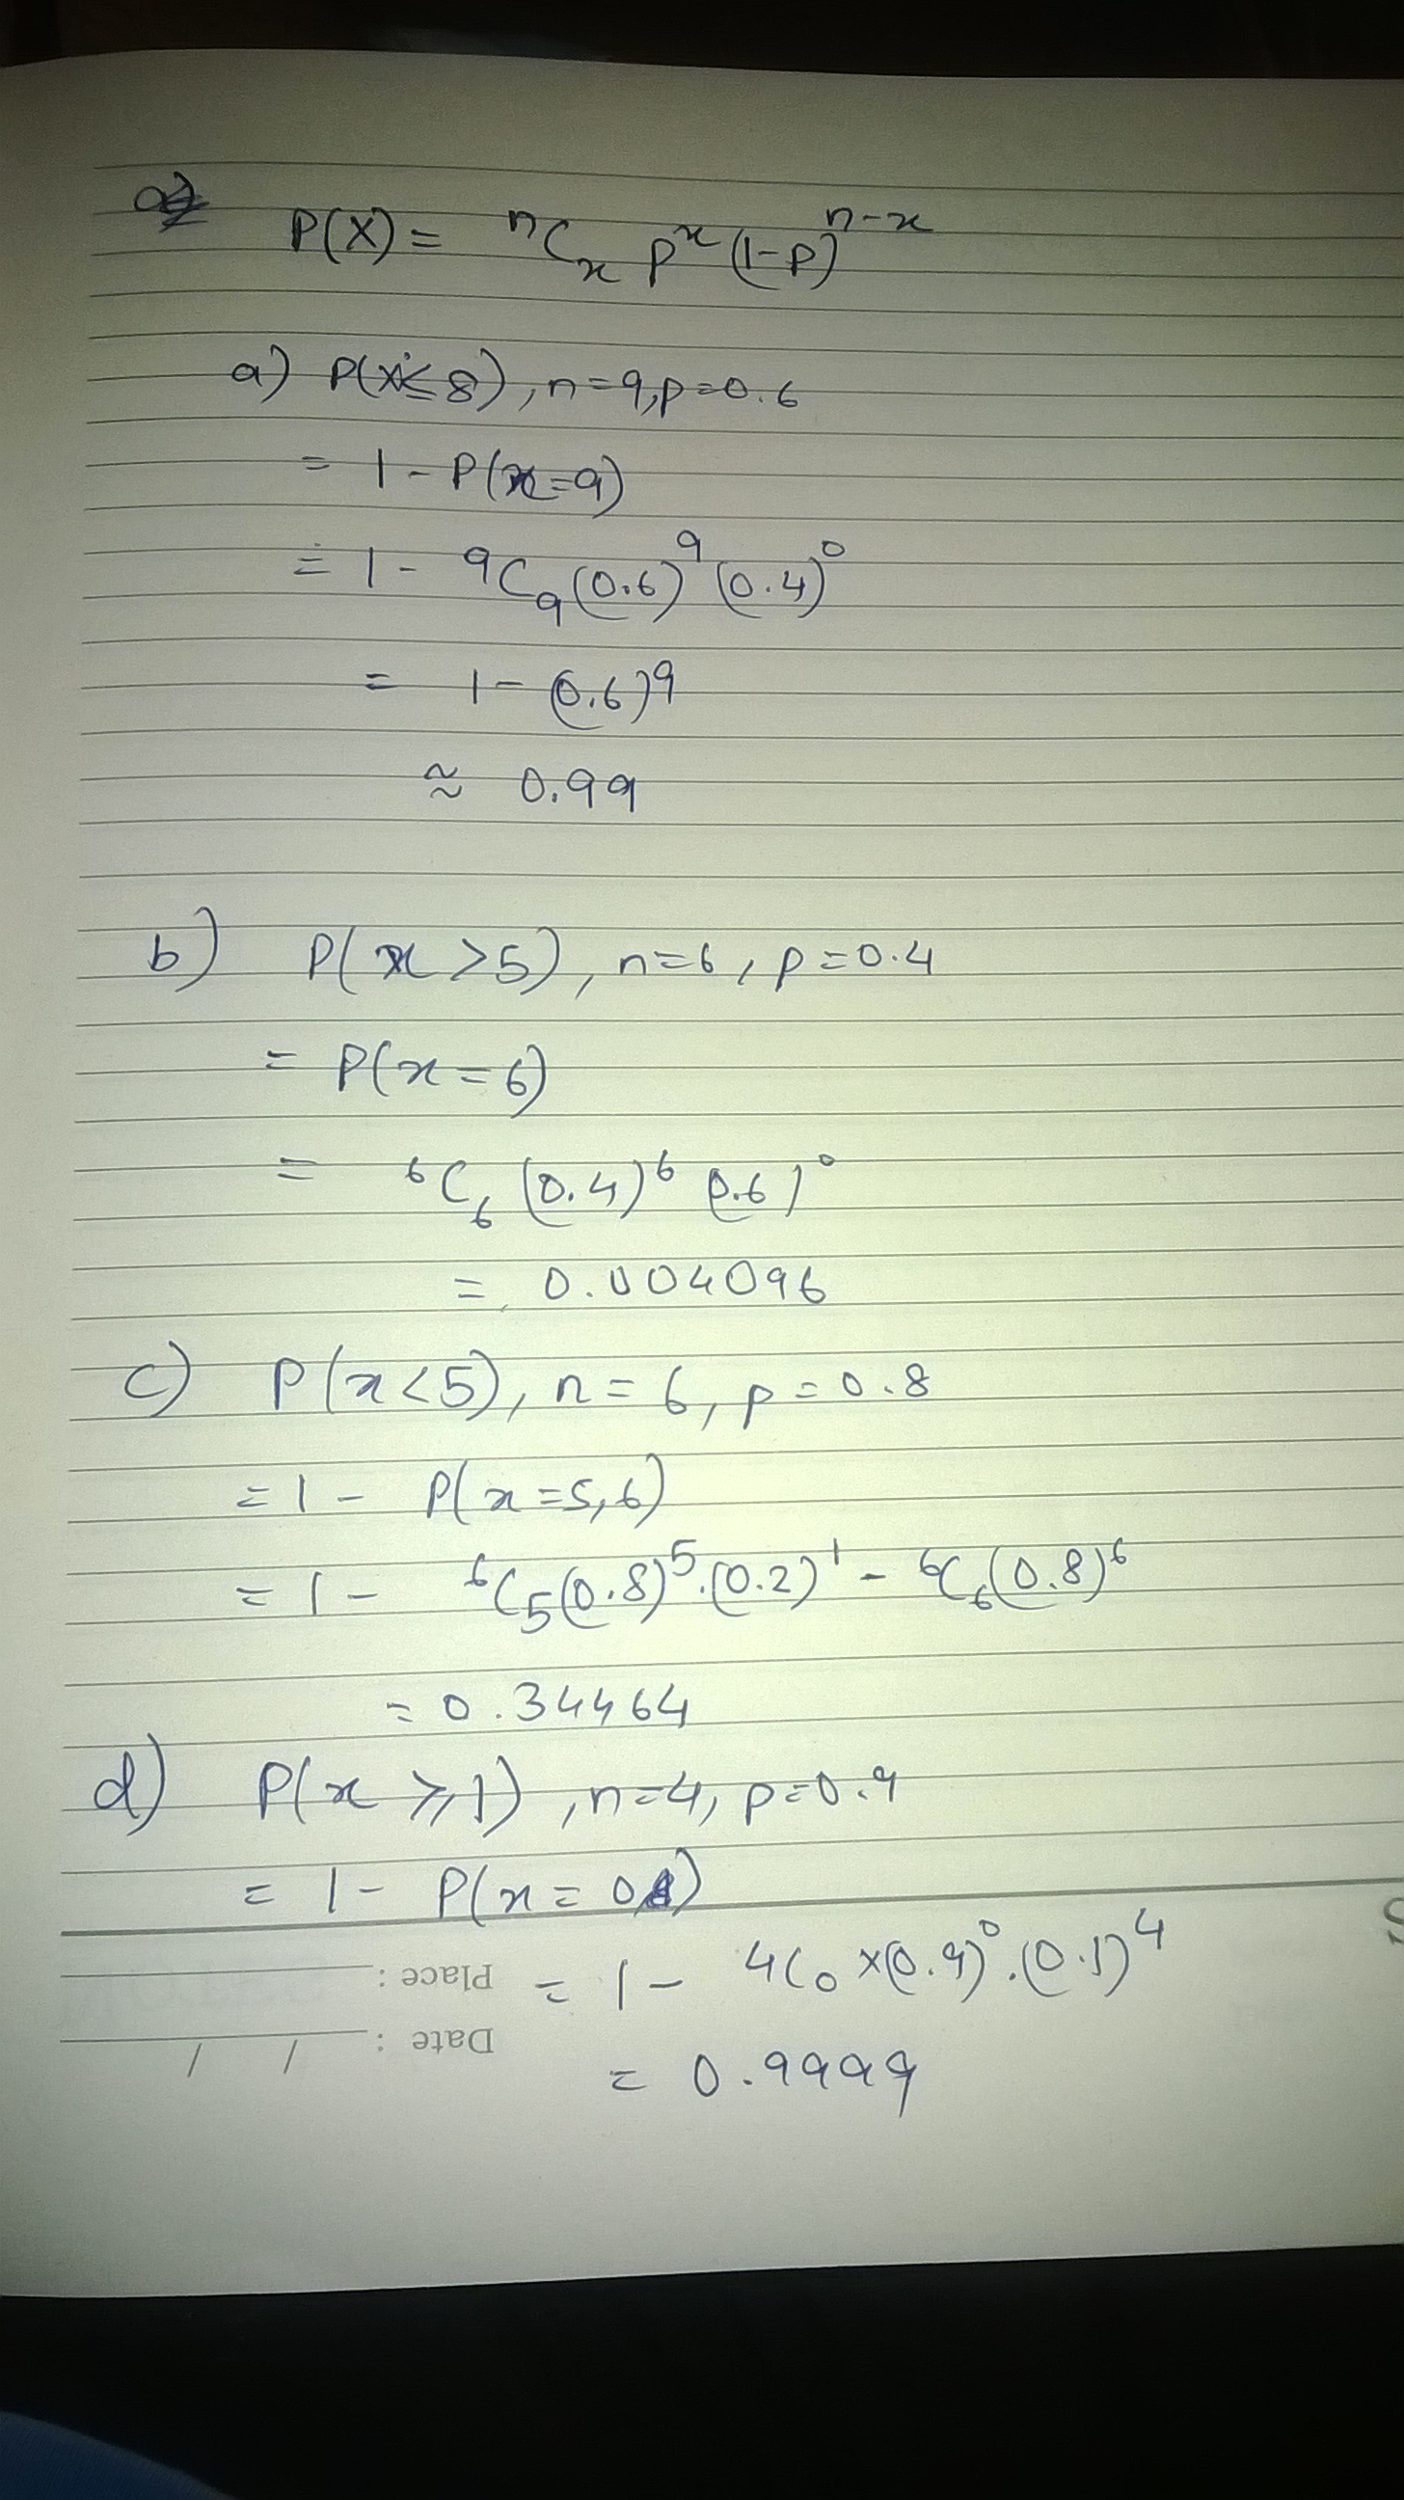 P(X) = ⁿCₓ pˣ (1-p)ⁿ⁻ˣ
a) P(x ≤ 8), n=9, p=0.6
= 1 - P(x=9)
= 1 - ⁹C₉ (0.6)⁹ (0.4)⁰
= 1 - (0.6)⁹
≈ 0.99
b) P(x > 5), n=6, p=0.4
= P(x=6)
= ⁶C₆ (0.4)⁶ (0.6)⁰
= 0.004096
c) P(x<5), n=6, p=0.8
= 1 - P(x=5,6)
= 1 - ⁶C₅(0.8)⁵.(0.2)¹ - ⁶C₆(0.8)⁶
= 0.34464
d) P(x ≥ 1), n=4, p=0.9
= 1 - P(x=0)
Place : = 1 - 4C₀ ×(0.9)⁰.(0.1)⁴
Date : / /
= 0.9999